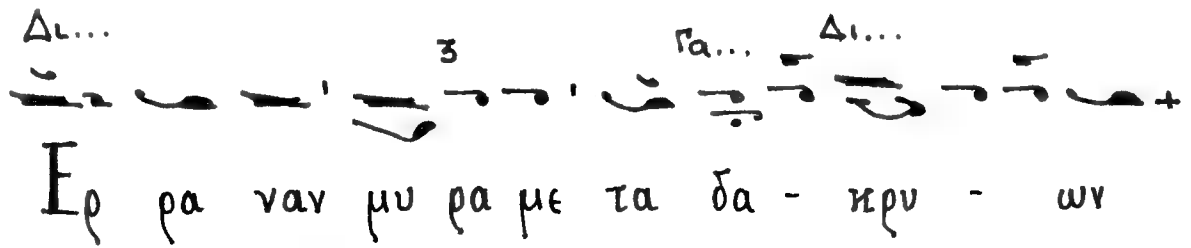 Δι... ζ Γα... Δι...
Ερ ρα ναν μυ ρα με τα δα - κρυ - ων